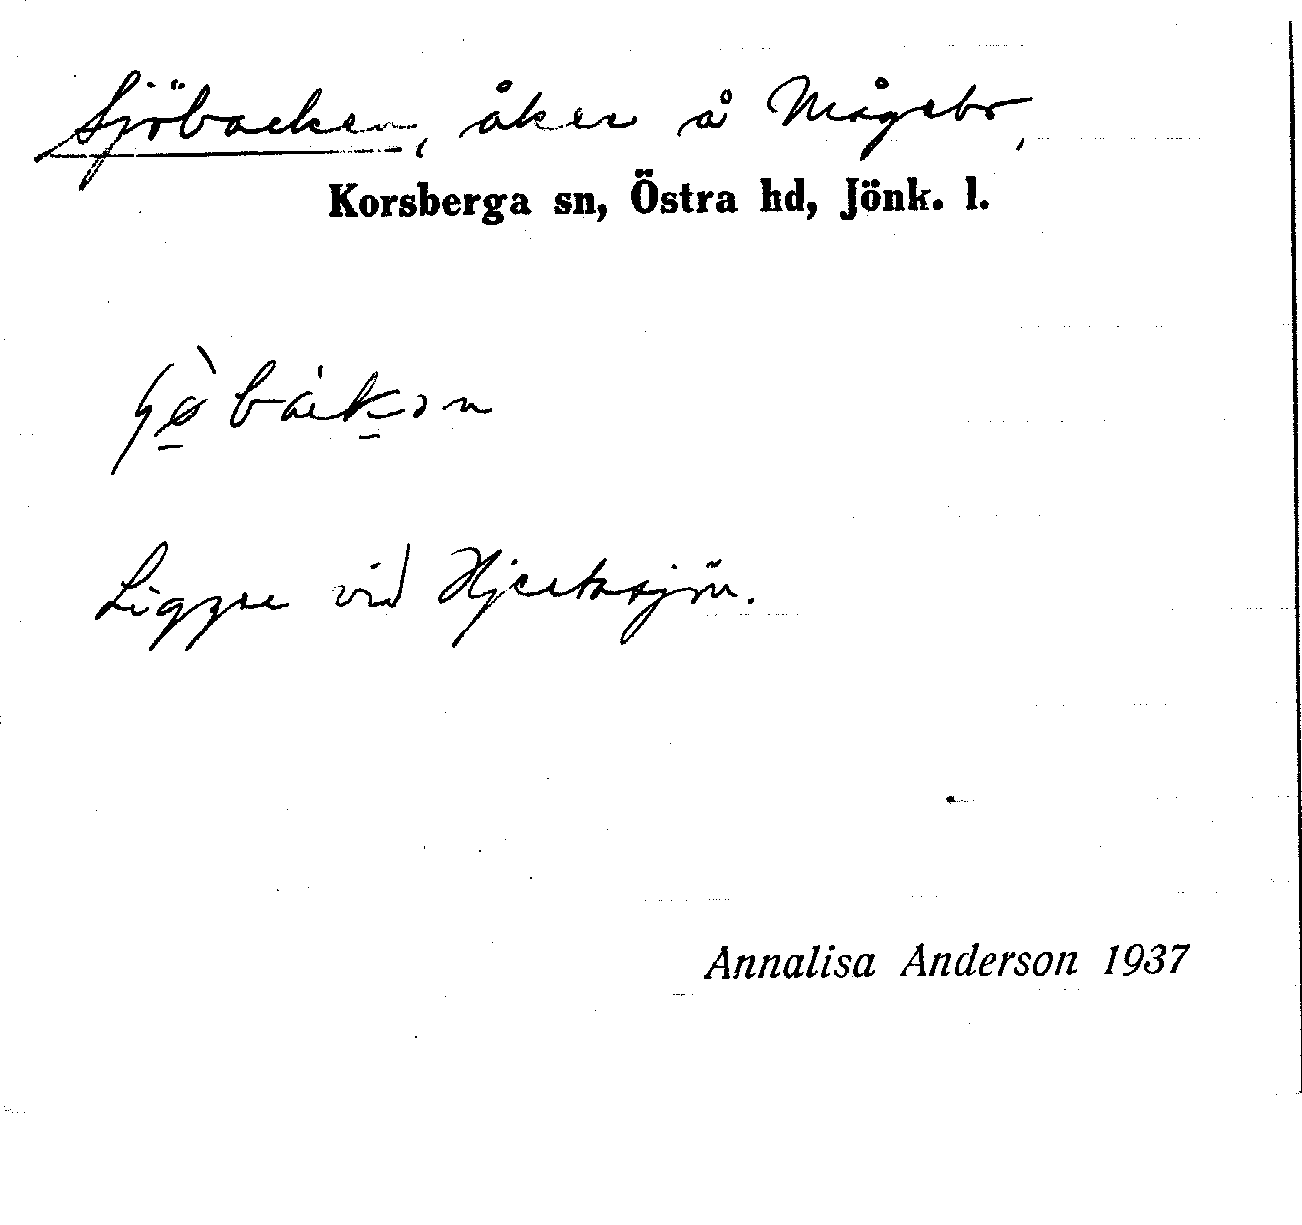 Sjöbacken, åker å Mågebo,
Korsberga sn, Östra hd, Jönk. l.
Ligger vid Hjertasjön.
Annalisa Anderson 1937